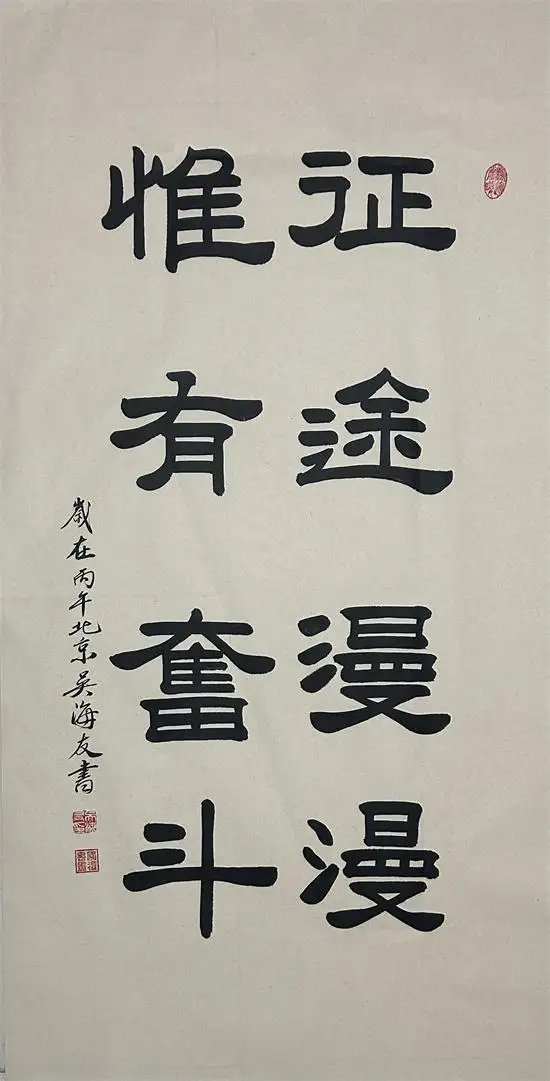 征途漫漫
惟有奮斗
歲在丙午北京吴海友書